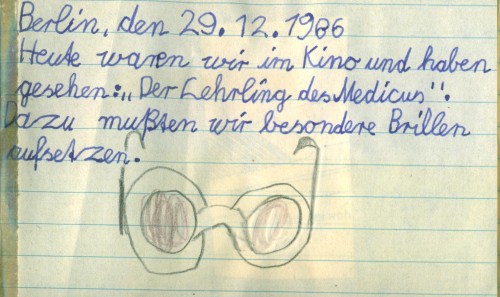 Berlin, den 29.12.1986
Heute waren wir im Kino und haben
gesehen: „Der Lehrling des Medicus".
Dazu mußten wir besondere Brillen
aufsetzen.